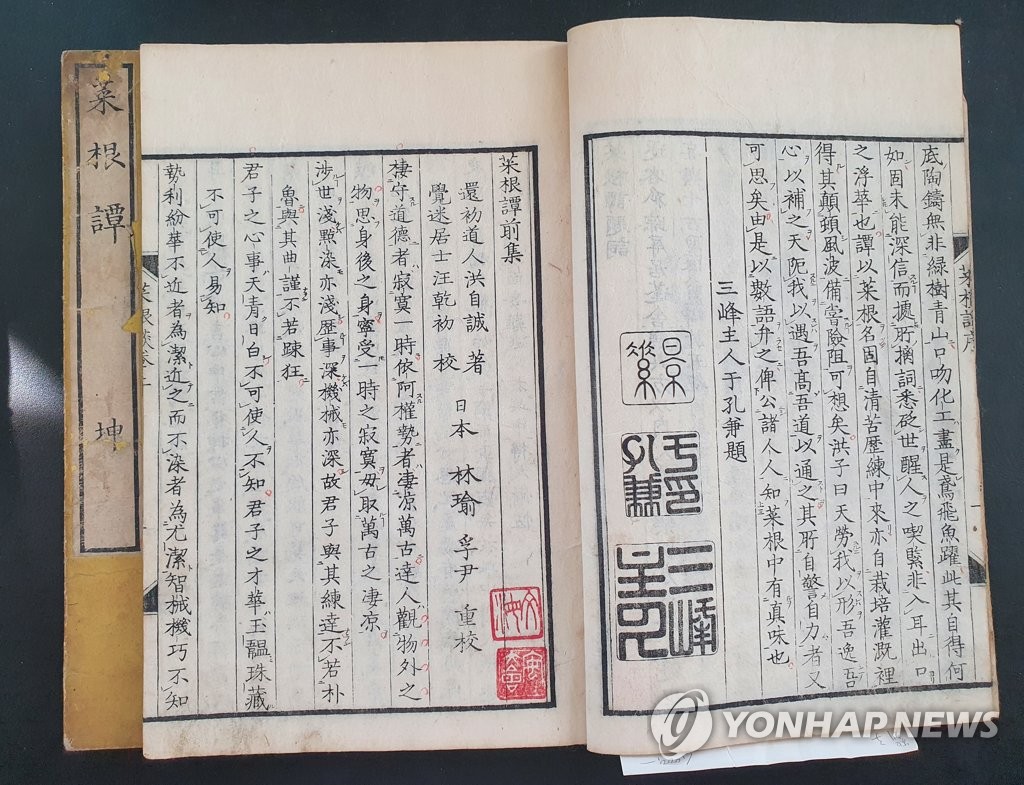 底陶鑄無非綠樹青山口吻化工盡是鳶飛魚躍此其自得何
如固未能深信而據所摛詞悉砭世醒人之喫緊非入耳出口
之浮華也譚以菜根名固自清苦歷練中來亦自栽培灌溉裡
得其顛頓風波備嘗險阻可想矣洪子曰天勞我以形吾逸吾
心以補之天阨我以遇吾高吾道以通之其所自警自力者又
可思矣由是以數語弁之俾公諸人人知菜根中有真味也
三峰主人于孔兼題
菜根譚前集
還初道人洪自誠 著
覺迷居士汪乾初 校
日本 林瑜 孚尹 重校
棲守道德者寂寞一時依阿權勢者凄凉萬古達人觀物外之
物思身後之身寧受一時之寂寞毋取萬古之凄凉
涉世淺點染亦淺歷事深機械亦深故君子與其練達不若朴
魯與其曲謹不若踈狂
君子之心事天青日白不可使人不知君子之才華玉韞珠藏
不可使人易知
勢利紛華不近者為潔近之而不染者為尤潔智械機巧不知
菜根譚 坤
YONHAP NEWS